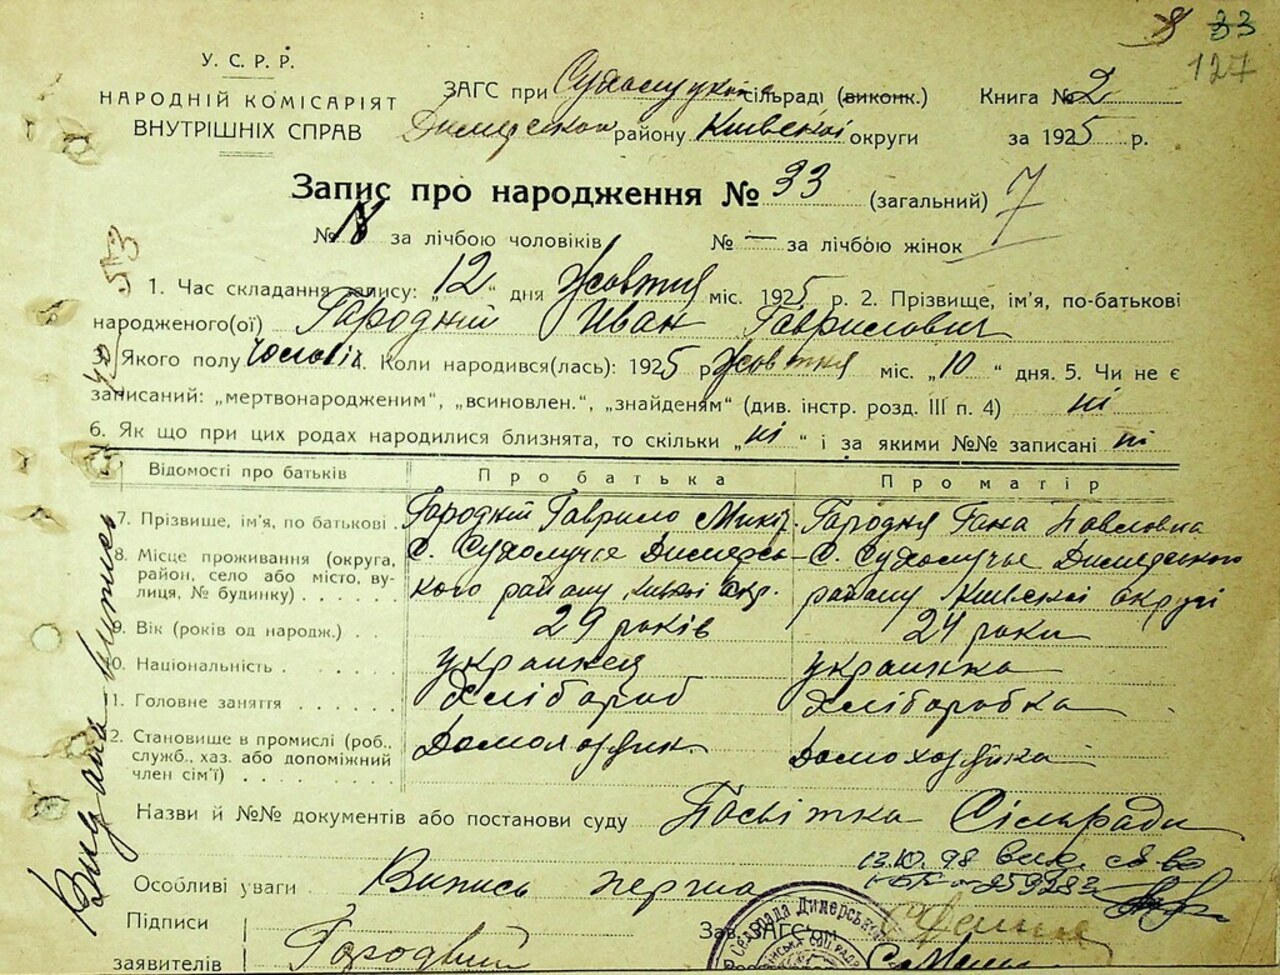 33
127
У. С. Р. Р.
НАРОДНІЙ КОМІСАРІЯТ
ВНУТРІШНІХ СПРАВ
ЗАГС при Сухолуцькій сільраді (виконк.) Книга № 2
Димерського району Київської округи за 1925 р.
Запис про народження № 33 (загальний) 7
№ 18 за лічбою чоловіків № — за лічбою жінок
1. Час складання запису: „12“ дня Жовтня міс. 1925 р. 2. Прізвище, ім’я, по-батькові
народженого(ої) Гародній Иван Гаврилович
3. Якого полу чоловіч. 4. Коли народився(лась): 1925 р. Жовтня міс. „10“ дня. 5. Чи не є
записаний: „мертвонародженим“, „всиновлен.“, „знайденям“ (див. інстр. розд. III п. 4) ні
6. Як що при цих родах народилися близнята, то скільки „ні“ і за якими №№ записані ні
Відомості про батьків Про батька Про матір
7. Прізвище, ім’я, по батькові . Гародній Гаврило Микіт. Гародня Гана Павловна
8. Місце проживання (округа, с. Сухолучье Димерсь- с. Сухолучье Димерського
район, село або місто, ву-
лиця, № будинку) . . . . . кого району Окр. району Київскої округі
9. Вік (років од народж.) . . 29 років 24 роки
10. Національність . . . . . украинец украинка
11. Головне заняття . . . . . . Хлібороб Хліборобка
12. Становище в промислі (роб., Домохозяик Домохозяика
служб., хаз. або допоміжний
член сім’ї) . . . . . . . .
Назви й №№ документів або постанови суду Посвітка Сільради
13.10.98 вид. св-во
259283
Особливі уваги Випись перша
Підписи Зав. ЗАГС’ом
заявителів Городній
Видана випись
573